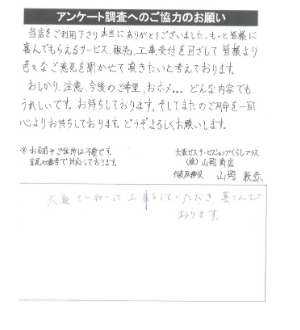 アンケート調査へのご協力のお願い
当店をご利用下さり本当にありがとうございました。もっと皆様に
喜んでもらえるサービス、販売、工事受付を目ざして皆様より
色々なご意見を聞かせて頂きたいと考えております。
おしかり、注意、今後のご希望、おホメ... どんな内容でも
うれしいです。お待ちしております。そしてまたのご用命を一同
心よりお待ちしております。どうぞよろしくお願いします。
※お名前やご住所は不要です。
大阪ガスサービスショップ
(株)山岡商店
代表取締役 山岡
大変
いただき、喜んで
おります。